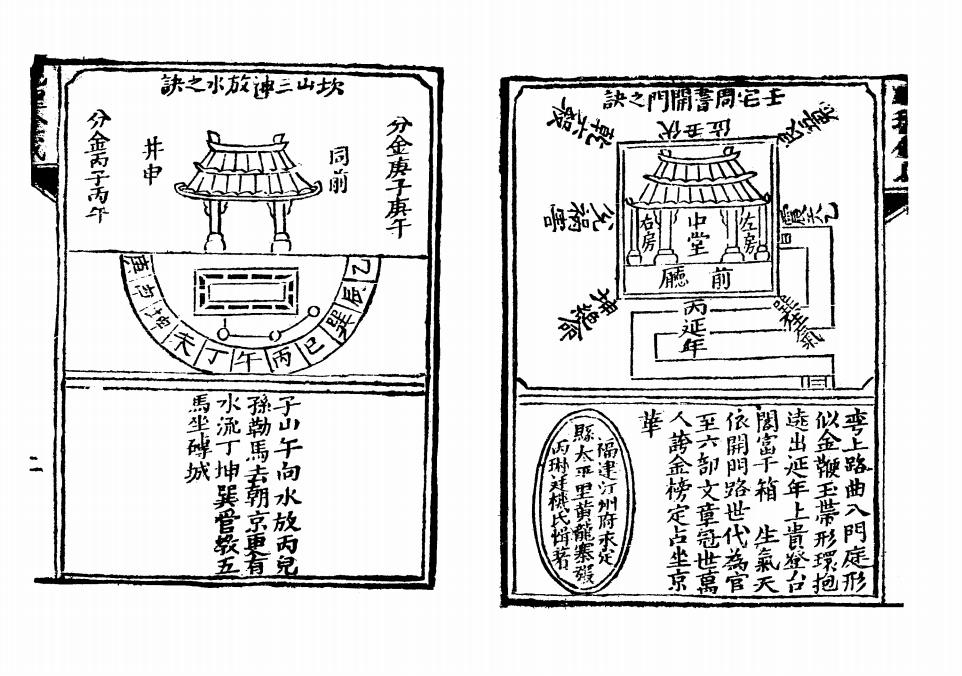 壬宅周書開門之訣
乾六殺
坤絕命
丙延年
巽生氣
左房
中堂
右房
前廳
彎上路曲入門庭形
似金鞭玉帶形環抱
遶出延年上貴登台
閣富千箱 生氣天
依開門路世代為官
至六部文章冠世萬
人誇金榜定占坐京
華
福建汀州府永定
縣太平里黃龍寨
坎山三神放水之訣
分金庚子庚午
同前
井申
分金丙子丙午
乙辰巽巳丙午丁未坤申庚
子山午向水放丙兒
孫勒馬去朝京更有
水流丁坤巽管教五
馬坐磚城
二